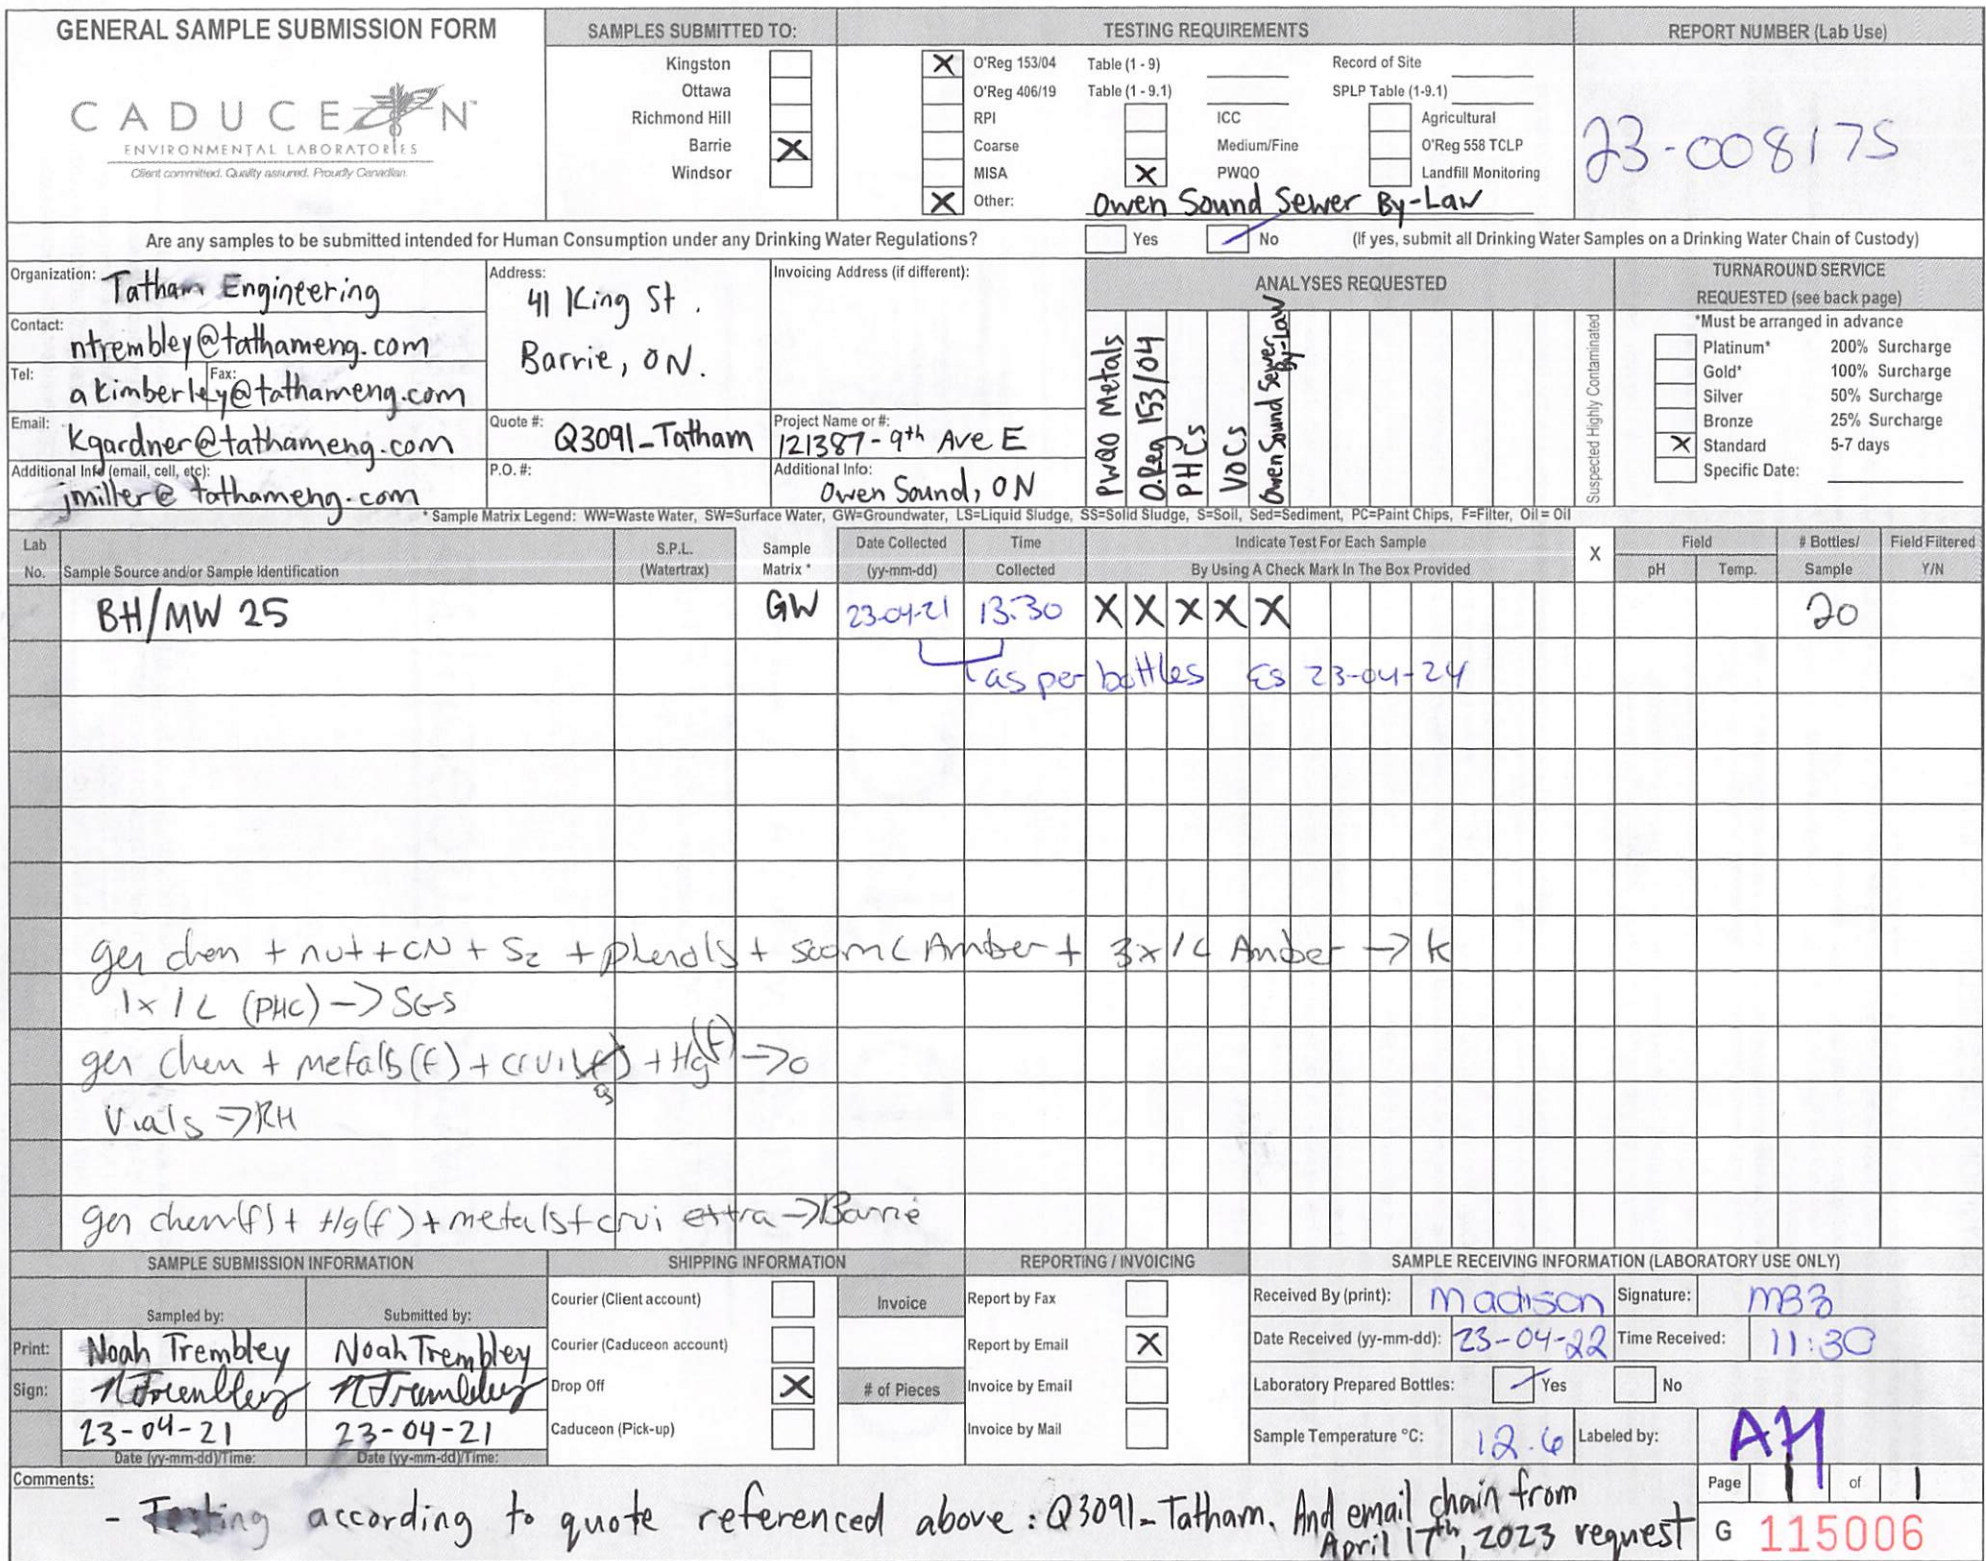 GENERAL SAMPLE SUBMISSION FORM
CADUCEON™
ENVIRONMENTAL LABORATORIES
Client committed. Quality assured. Proudly Canadian.
SAMPLES SUBMITTED TO:
Kingston
Ottawa
Richmond Hill
Barrie X
Windsor
TESTING REQUIREMENTS
X O'Reg 153/04 Table (1 - 9) Record of Site
O'Reg 406/19 Table (1 - 9.1) SPLP Table (1-9.1)
RPI ICC Agricultural
Coarse Medium/Fine O'Reg 558 TCLP
MISA X PWQO Landfill Monitoring
X Other: Owen Sound Sewer By-Law
REPORT NUMBER (Lab Use)
23-008175
Are any samples to be submitted intended for Human Consumption under any Drinking Water Regulations? Yes No (If yes, submit all Drinking Water Samples on a Drinking Water Chain of Custody)
Organization: Tatham Engineering
Contact: ntrembley@tathameng.com
Tel: Fax:
akimberley@tathameng.com
Email: kgardner@tathameng.com
Additional Info (email, cell, etc):
jmiller@tathameng.com
Address:
41 King St.
Barrie, ON.
Quote #: Q3091_Tatham
P.O. #:
Invoicing Address (if different):
Project Name or #:
121387-9th Ave E
Additional Info:
Owen Sound, ON
ANALYSES REQUESTED
PWQO Metals
O.Reg 153/04
PHCs
VOCs
Owen Sound Sewer By-Law
Suspected Highly Contaminated
TURNAROUND SERVICE
REQUESTED (see back page)
*Must be arranged in advance
Platinum* 200% Surcharge
Gold* 100% Surcharge
Silver 50% Surcharge
Bronze 25% Surcharge
X Standard 5-7 days
Specific Date:
* Sample Matrix Legend: WW=Waste Water, SW=Surface Water, GW=Groundwater, LS=Liquid Sludge, SS=Solid Sludge, S=Soil, Sed=Sediment, PC=Paint Chips, F=Filter, Oil = Oil
Lab No.
Sample Source and/or Sample Identification
S.P.L. (Watertrax)
Sample Matrix *
Date Collected (yy-mm-dd)
Time Collected
Indicate Test For Each Sample
By Using A Check Mark In The Box Provided
X
Field
pH Temp.
# Bottles/ Sample
Field Filtered Y/N
BH/MW 25 GW 23-04-21 13:30 X X X X X 20
as per bottles ES 23-04-24
gen chem + nut + CN + S2 + phenols + 500mL Amber + 3x1L Amber -> K
1x1L (PHC) -> SGS
gen chem + metals(f) + crvi(f) + Hg(f) -> O
Vials -> RH
gen chem(f) + Hg(f) + metals + crvi extra -> Barrie
SAMPLE SUBMISSION INFORMATION
Sampled by: Submitted by:
Print: Noah Trembley Noah Trembley
Sign: NTrembley NTrembley
23-04-21 23-04-21
Date (yy-mm-dd)/Time: Date (yy-mm-dd)/Time:
SHIPPING INFORMATION
Courier (Client account)
Courier (Caduceon account)
Drop Off X
Caduceon (Pick-up)
Invoice
# of Pieces
REPORTING / INVOICING
Report by Fax
Report by Email X
Invoice by Email
Invoice by Mail
SAMPLE RECEIVING INFORMATION (LABORATORY USE ONLY)
Received By (print): Madison Signature:
Date Received (yy-mm-dd): 23-04-22 Time Received: 11:30
Laboratory Prepared Bottles: Yes No
Sample Temperature °C: 12.6 Labeled by: AH
Comments:
- Testing according to quote referenced above: Q3091_Tatham. And email chain from
April 17th, 2023 request
Page 1 of 1
G 115006